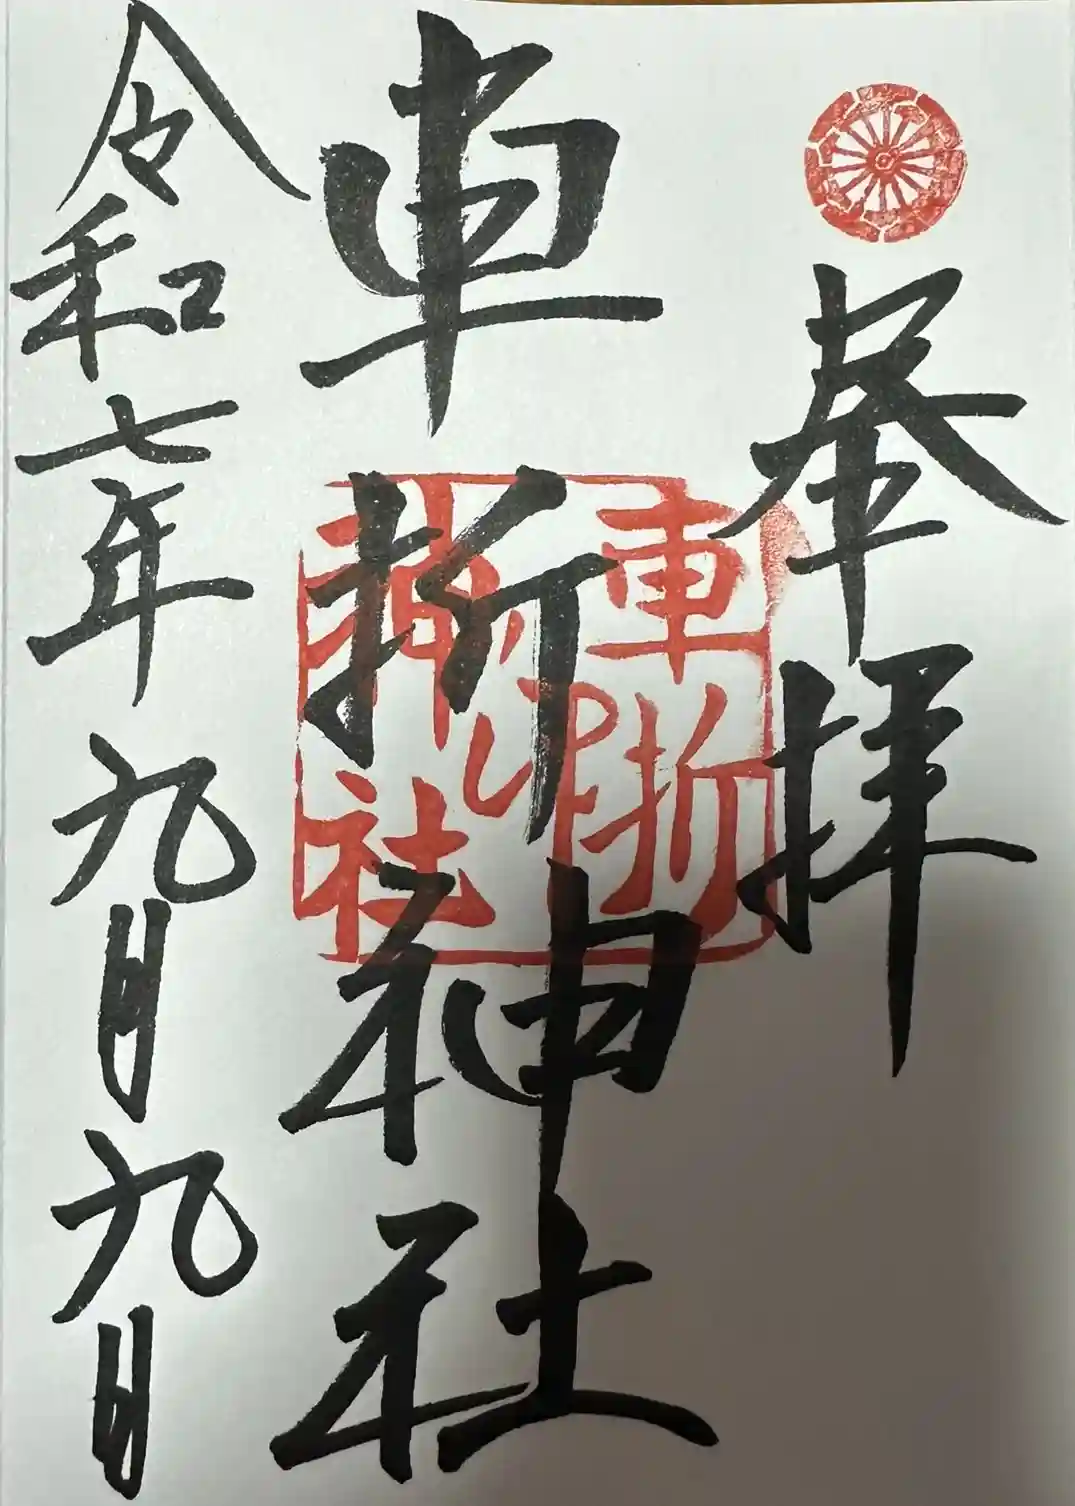 奉拝
車折神社
車折
神社
令和七年九月九日